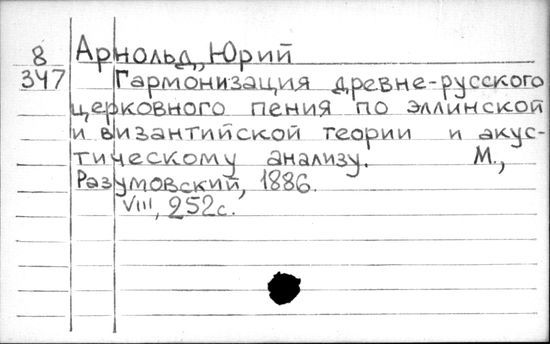 8 Арнольд, Юрий
347 Гармонизация древне-русского
церковного пения по эллинской
и византийской теории и акус-
тическому анализу. М.,
Разумовский, 1886.
VIII, 252с.